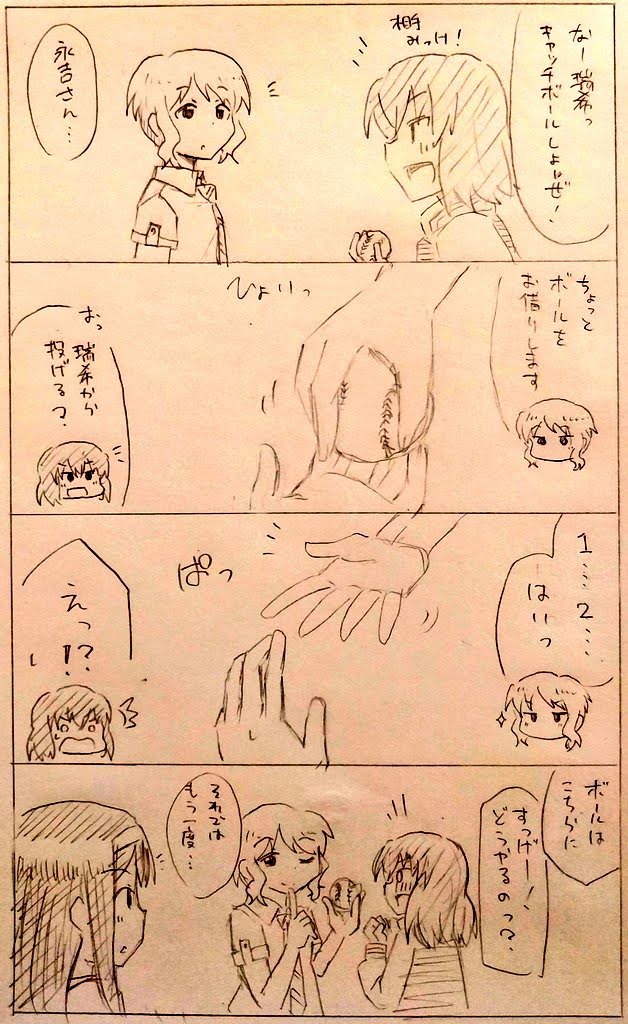 なー瑞希っ
キャッチボールしよーぜ!
相手
みっけ!
永吉さん…
ちょっと
ボールを
お借りします
ひょいっ
おっ
瑞希から
投げる?
1……2……
はいっ
ぱっ
えっ!?
ボールは
こちらに
すっげー!
どうやるのっ??
それでは
もう一度…